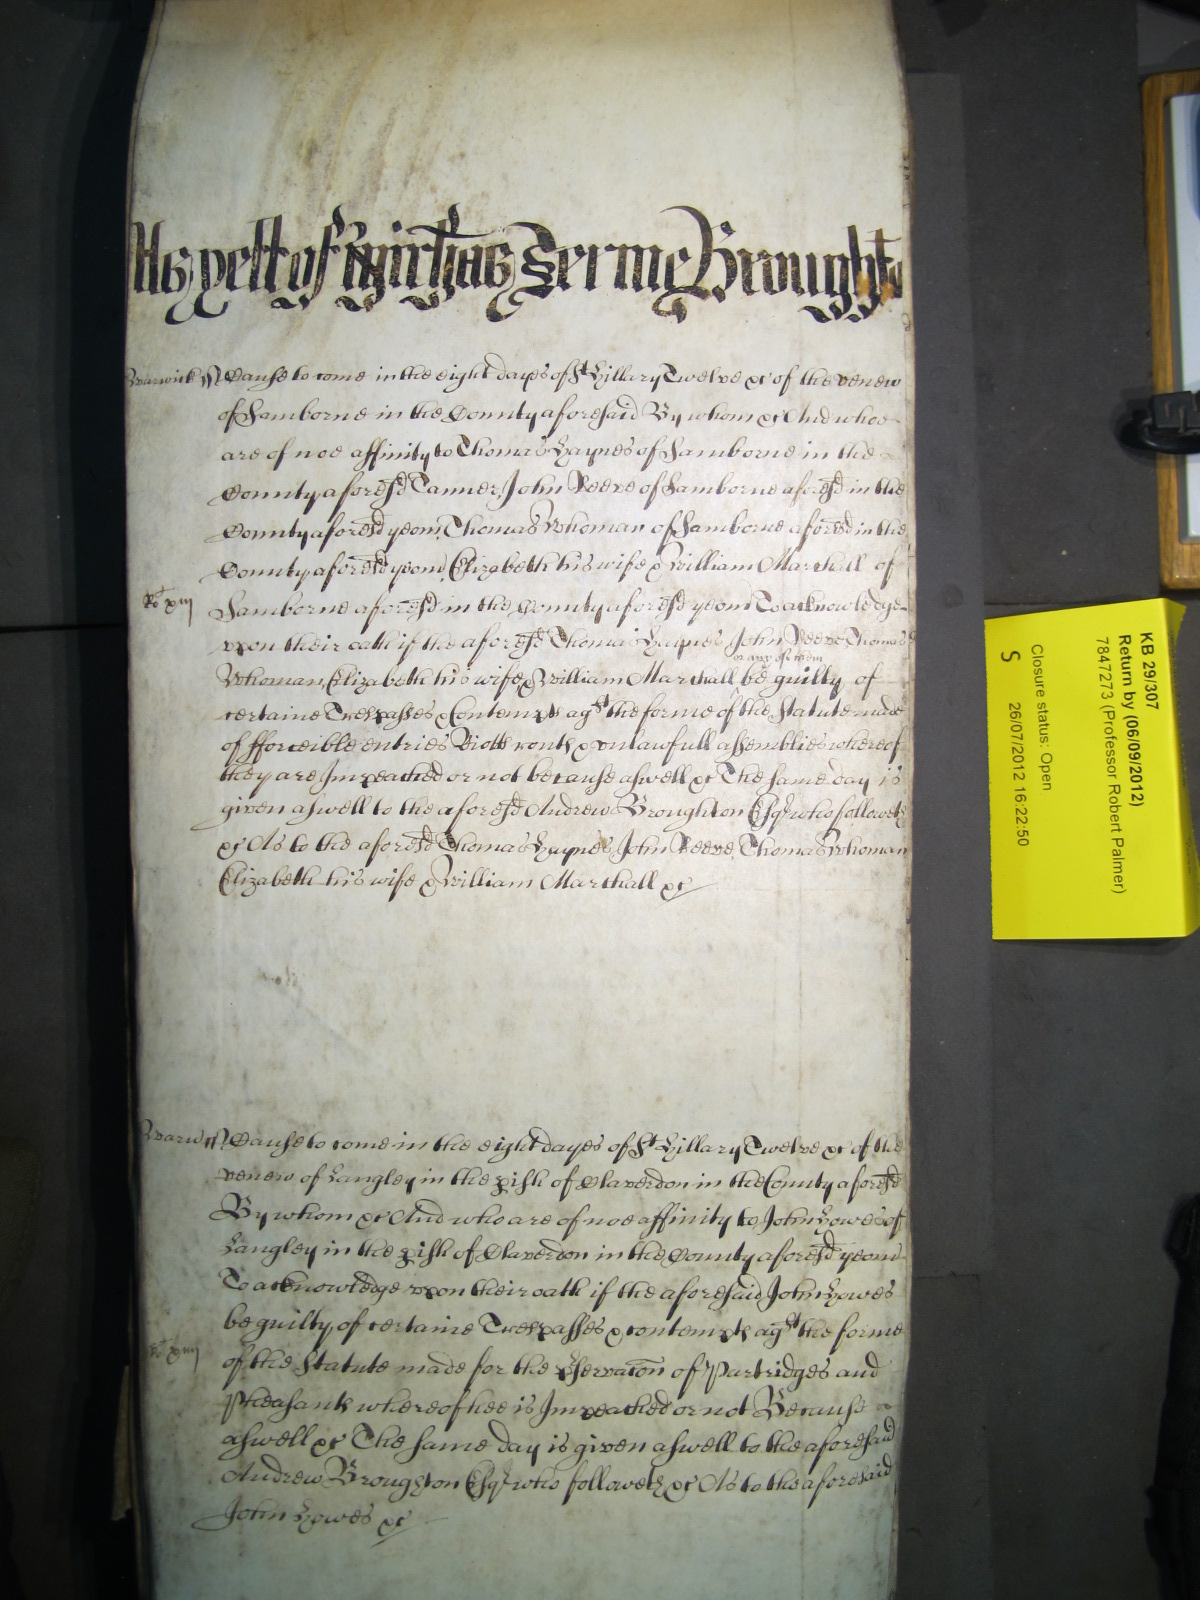 As yett of Michas Terme Brought
Warwick ss Cause to come in the eight dayes of St Hillary Twelve &c of the venew
of Samborne in the County aforesaid By whom &c And whoe
are of noe affinity to Thomas Haynes of Samborne in the
County aforesd Tanner, John Reeve of Samborne aforesd in the
County aforesd yeom, Thomas Whoman of Samborne aforesd in the
County aforesd yeom, Elizabeth his wife & William Marshall of
Ro xiij
Samborne aforesd in the County aforesd yeom To acknowledge
upon their oath if the aforesd Thomas Haynes John Reeve Thomas
or any of them
Whoman, Elizabeth his wife, & William Marshall be guilty of
certaine Trespasses & Contempts agst the forme of the Statute made
of fforceible entries Riotts routs & unlawfull assemblies whereof
they are Impeached or not because aswell &c The same day is
given aswell to the aforesd Andrew Broughton Esqr who followeth
&c As to the aforesd Thomas Haynes, John Reeve, Thomas Whoman
Elizabeth his wife & William Marshall &c
Warw ss Cause to come in the eight dayes of St Hillary Twelve &c of the
venew of Langley in the pish of Claverdon in the County aforesd
By whom &c And who are of noe affinity to John Howes of
Langley in the pish of Claverdon in the County aforesd yeom
To acknowledge upon their oath if the aforesaid John Howes
be guilty of certaine Trespasses & contempts agst the forme
Ro xiij
of the Statute made for the pservacon of Partridges and
Pheasants whereof hee is Impeached or not Because
aswell &c The same day is given aswell to the aforesaid
Andrew Broughton Esqr who followeth &c As to the aforesaid
John Howes &c
KB 29/307
Return by (06/09/2012)
7847273 (Professor Robert Palmer)
Closure status: Open
S 26/07/2012 16:22:50